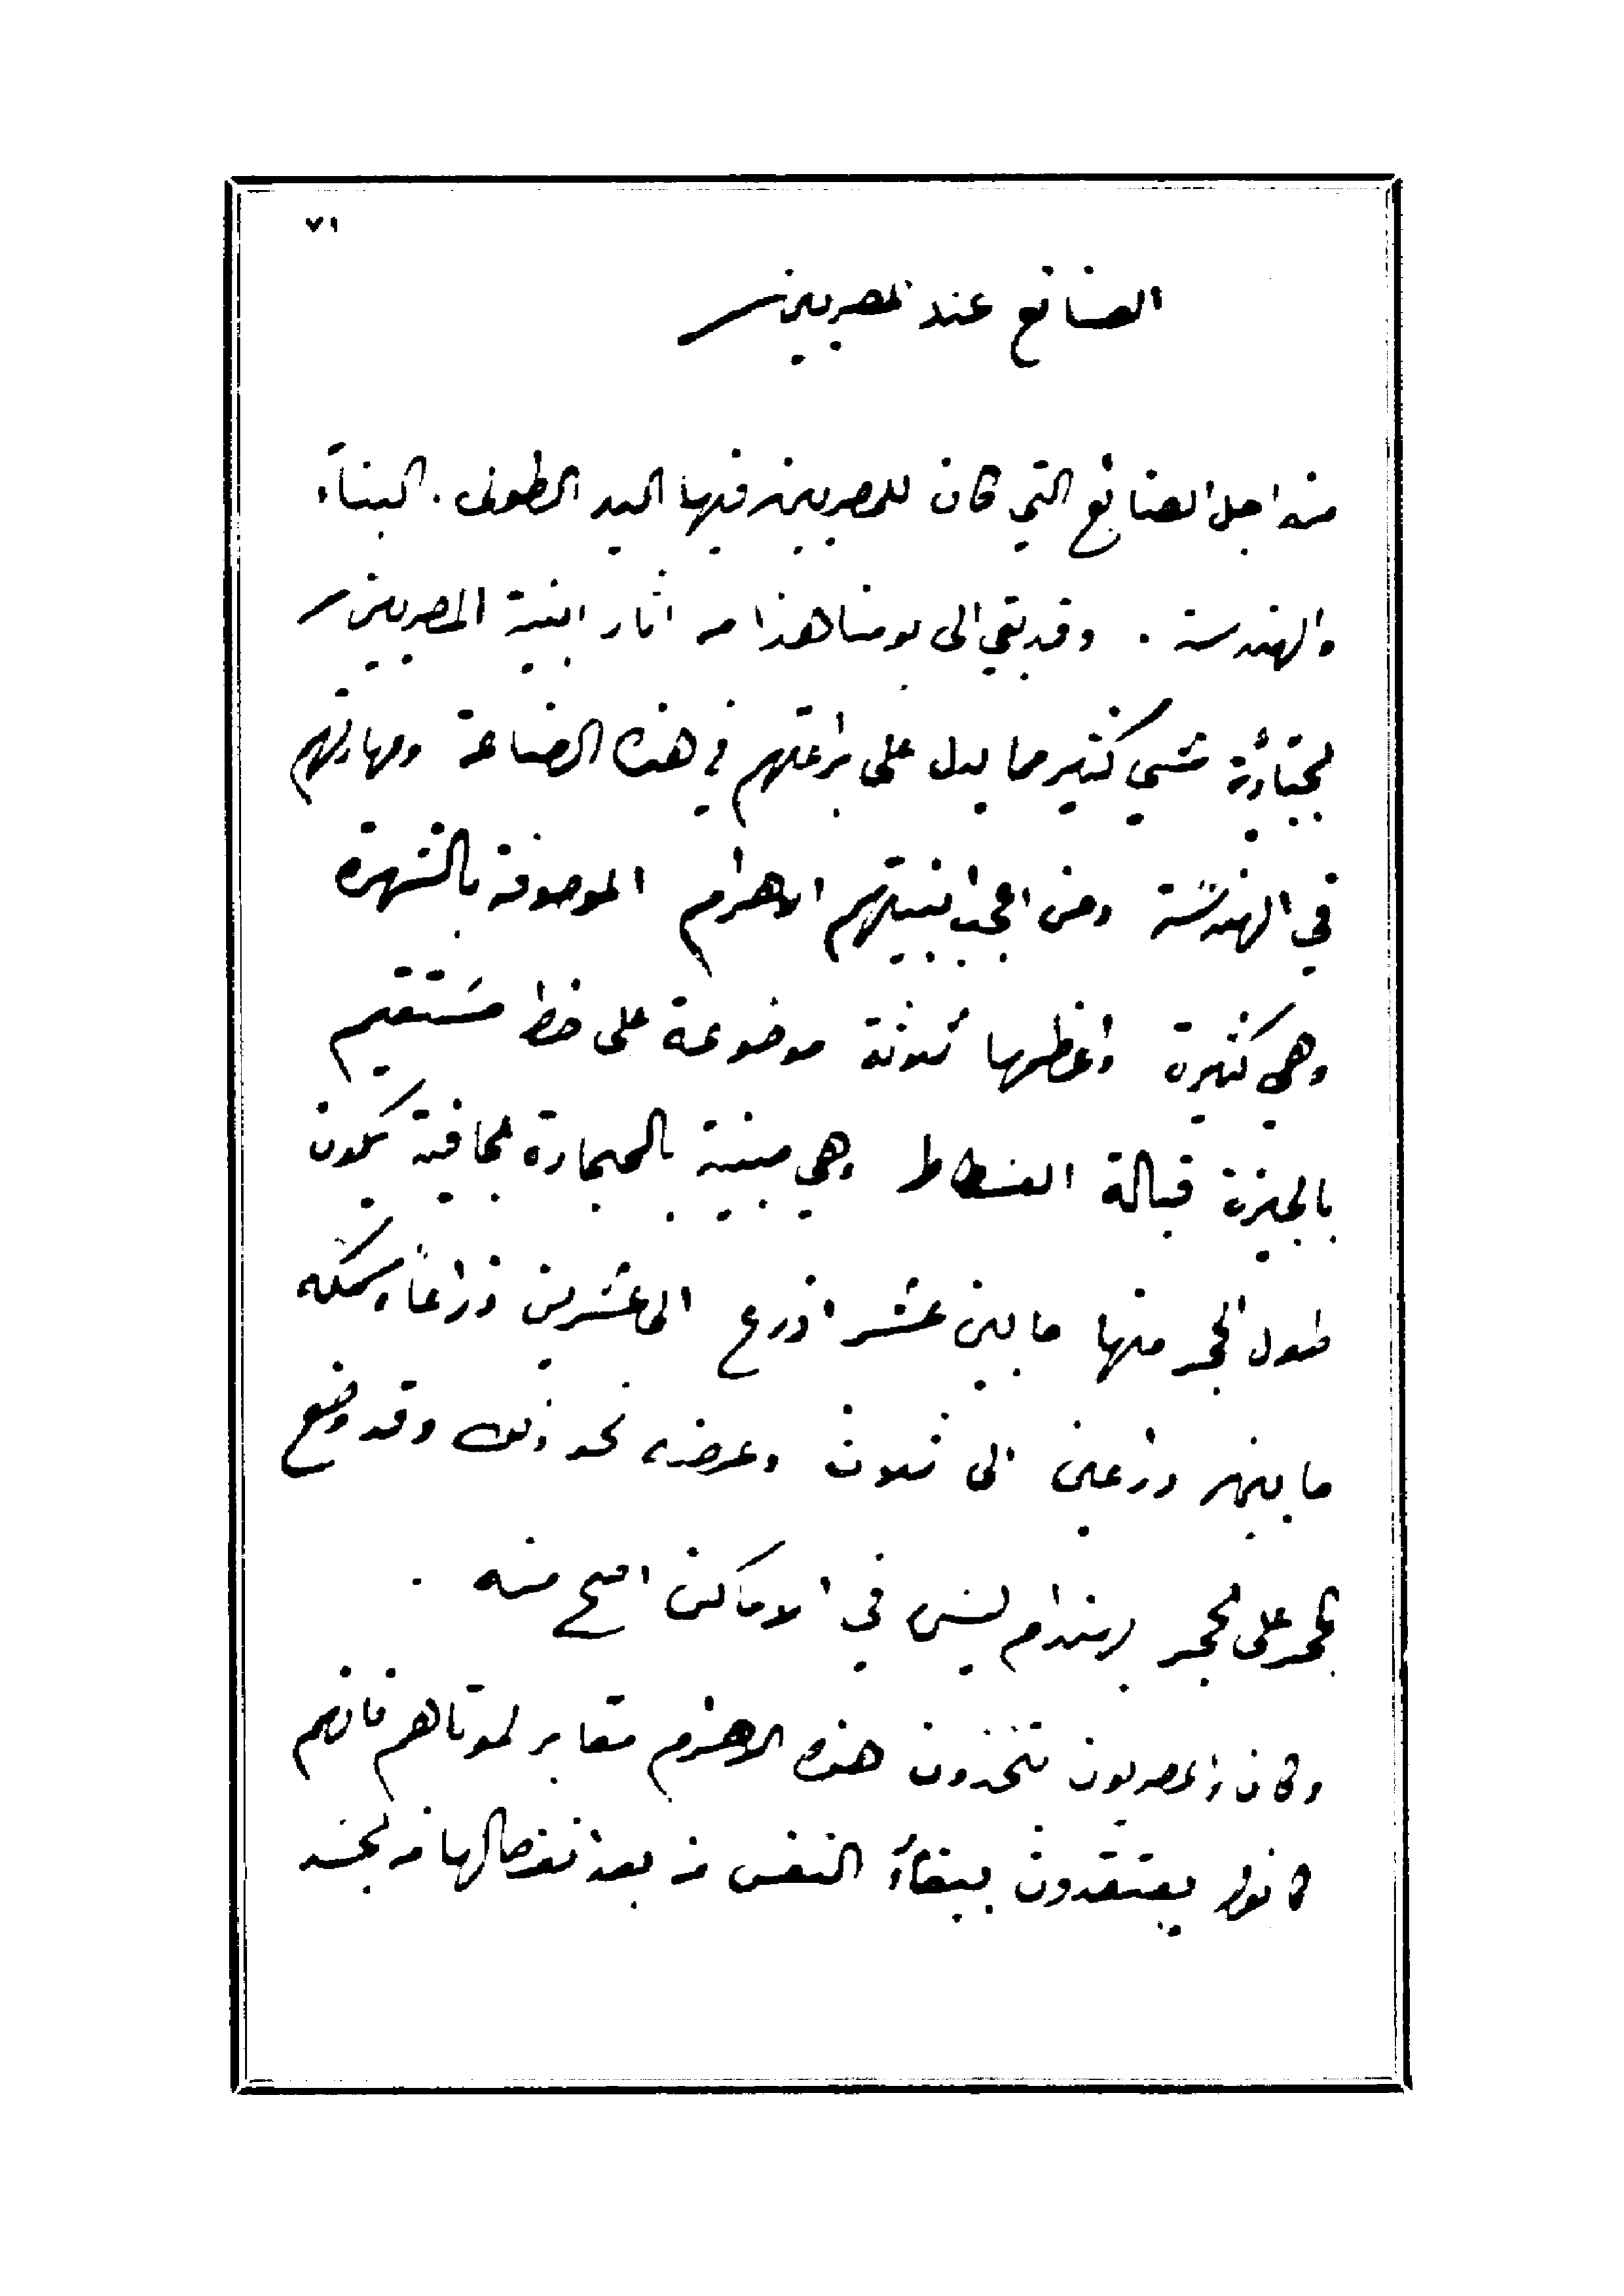 ٧١
الصنائع عند المصريين
من اجل الصنائع التي كان للمصريين فيها اليد الطولى . البناء
والهندسة . وقد بقي الى يومنا هذا من اثار ابنية المصريين
شي كثير مما يدل على براعتهم في هذه الصناعة ومهارتهم
في الهندسة ومن اعجب ابنيتهم الاهرام الموصوفة بالشهرة
وهي كثيرة واعظمها ثلاثة موضوعة على خط مستقيم
بالجيزة قبالة الفسطاط وهي مبنية بالحجارة الجافية يكون
طول الحجر منها ما بين عشر اذرع الى عشرين ذراعاً وسمكه
ما بين ذراعين الى ثلاث وعرضه نحو ذلك وقد وضع
الحجر على الحجر بهندام ليس في الامكان اصح منه .
وكان المصريون يتخذون هذه الاهرام مقابر لموتاهم فانهم
كانوا يعتقدون ببقاء النفس من بعد انفصالها من الجسد